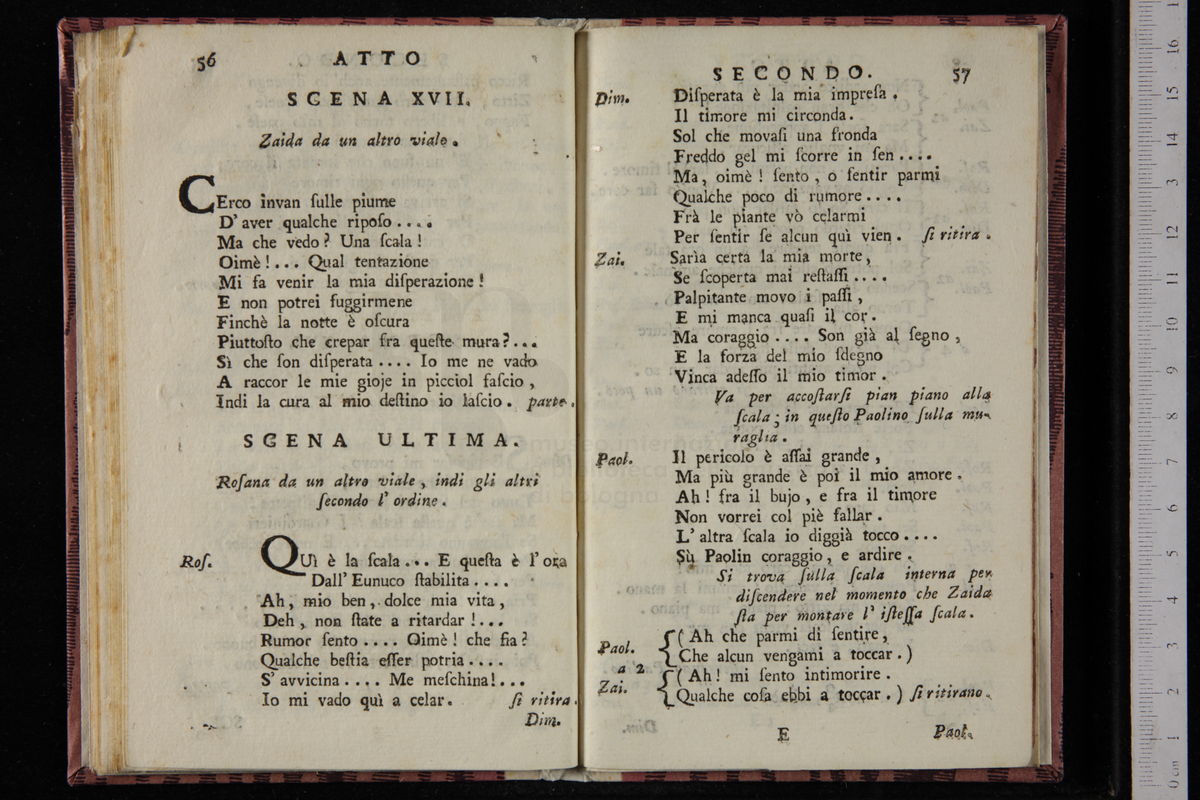 56 ATTO
SCENA XVII.
Zaida da un altro viale.
CErco invan ſulle piume
D' aver qualche ripoſo ....
Ma che vedo? Una ſcala!
Oimè!... Qual tentazione
Mi fa venir la mia diſperazione!
E non potrei fuggirmene
Finchè la notte è oſcura
Piuttoſto che crepar fra queſte mura?...
Sì che ſon diſperata .... Io me ne vado
A raccor le mie gioje in picciol faſcio,
Indi la cura al mio deſtino io laſcio. parte.
SCENA ULTIMA.
Roſana da un altro viale, indi gli altri
ſecondo l' ordine.
Roſ. QUì è la ſcala ... E queſta è l' ora
Dall' Eunuco ſtabilita ....
Ah, mio ben, dolce mia vita,
Deh, non ſtate a ritardar!...
Rumor ſento .... Oimè! che fia?
Qualche beſtia eſſer potria ....
S' avvicina .... Me meſchina!...
Io mi vado quì a celar. ſi ritira.
Dim.
SECONDO. 57
Dim. Diſperata è la mia impreſa.
Il timore mi circonda.
Sol che movaſi una fronda
Freddo gel mi ſcorre in ſen ....
Ma, oimè! ſento, o ſentir parmi
Qualche poco di rumore ....
Frà le piante vò celarmi
Per ſentir ſe alcun quì vien. ſi ritira.
Zai. Sarìa certa la mia morte,
Se ſcoperta mai reſtaſſi ....
Palpitante movo i paſſi,
E mi manca quaſi il cor.
Ma coraggio .... Son già al ſegno,
E la forza del mio ſdegno
Vinca adeſſo il mio timor.
Va per accoſtarſi pian piano alla
ſcala; in queſto Paolino ſulla mu-
raglia.
Paol. Il pericolo è aſſai grande,
Ma più grande è poi il mio amore.
Ah! fra il bujo, e fra il timore
Non vorrei col piè fallar.
L' altra ſcala io diggià tocco ....
Sù Paolin coraggio, e ardire.
Si trova ſulla ſcala interna per
diſcendere nel momento che Zaida
ſta per montare l' iſteſſa ſcala.
Paol. {( Ah che parmi di ſentire,
Che alcun vengami a toccar.)
a 2
Zai. {( Ah! mi ſento intimorire.
Qualche coſa ebbi a toccar.) ſi ritirano.
E Paol.